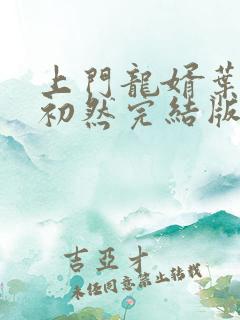 上門龍婿葉
初然完結版
吉亞才
未經同意禁止轉載